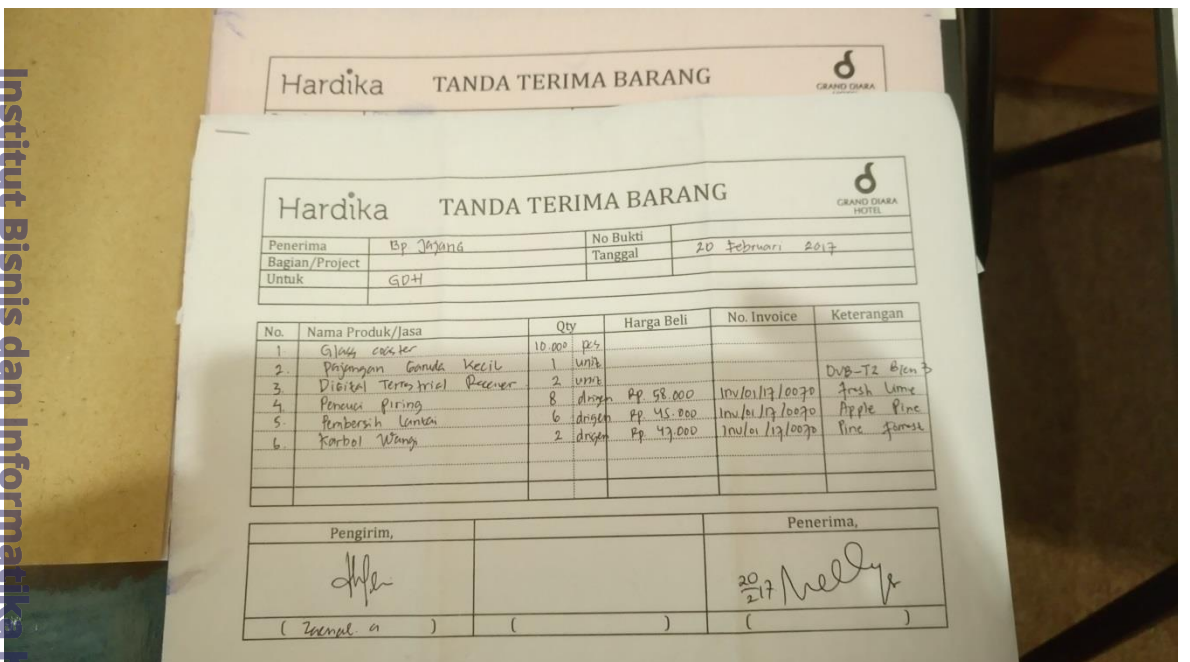 Institut Bisnis dan Informatika K
Hardika TANDA TERIMA BARANG
GRAND DIARA
Hardika TANDA TERIMA BARANG
GRAND DIARA
HOTEL
Penerima Bp Jajang No Bukti
Bagian/Project Tanggal 20 Februari 2017
Untuk GDH
No. Nama Produk/Jasa Qty Harga Beli No. Invoice Keterangan
1. Glass coaster 10.000 pcs
2. Pajangan Garuda Kecil 1 unit
3. Digital Terrestrial Receiver 2 unit DVB-T2
4. Pencuci Piring 8 drigen Rp. 58.000 Inv/01/17/0070 Fresh Lime
5. Pembersih Lantai 6 drigen Rp. 45.000 Inv/01/17/0070 Apple Pine
6. Karbol Wangi 2 drigen Rp. 47.000 Inv/01/17/0070 Pine Forrest
Pengirim, Penerima,
20/2 17 Nelly
( Zaenal. a ) ( ) ( )